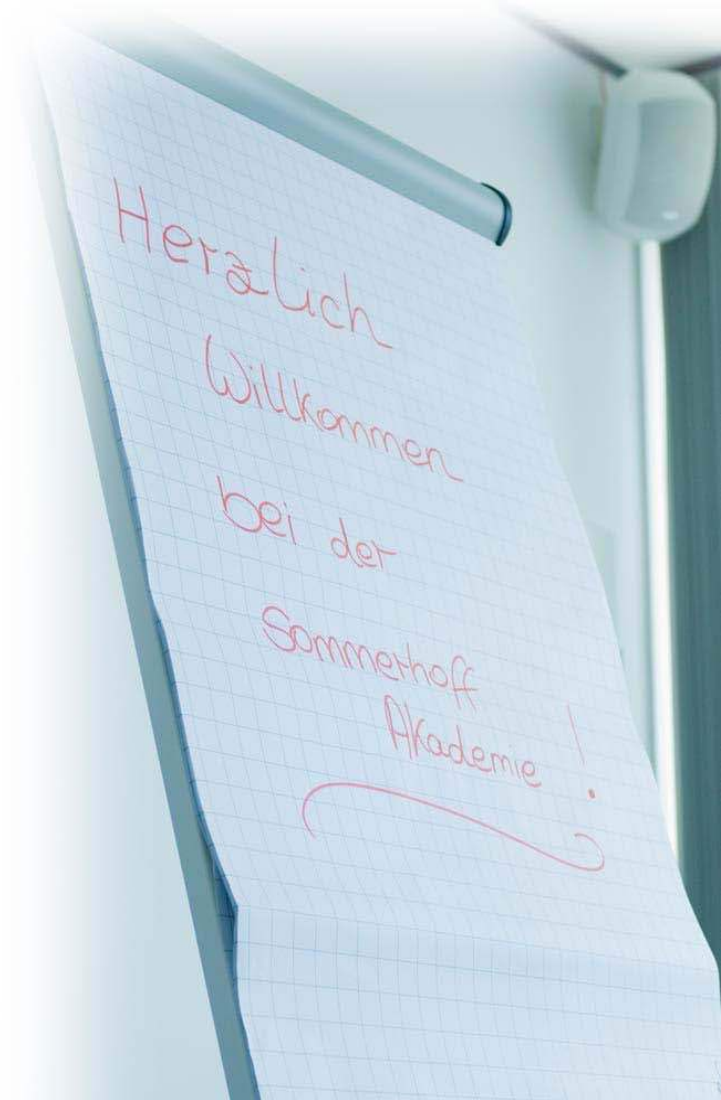 Herzlich
Willkommen
bei der
Sommerhoff
Akademie !